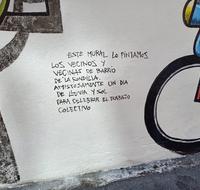 ESTE MURAL LO PINTAMOS
LOS VECINOS Y
VECINAS DE BARRIO
DE LA
AMISTOSAMENTE UN DIA
DE LLUVIA Y SOL
PARA CELEBRAR EL TRABAJO
COLECTIVO